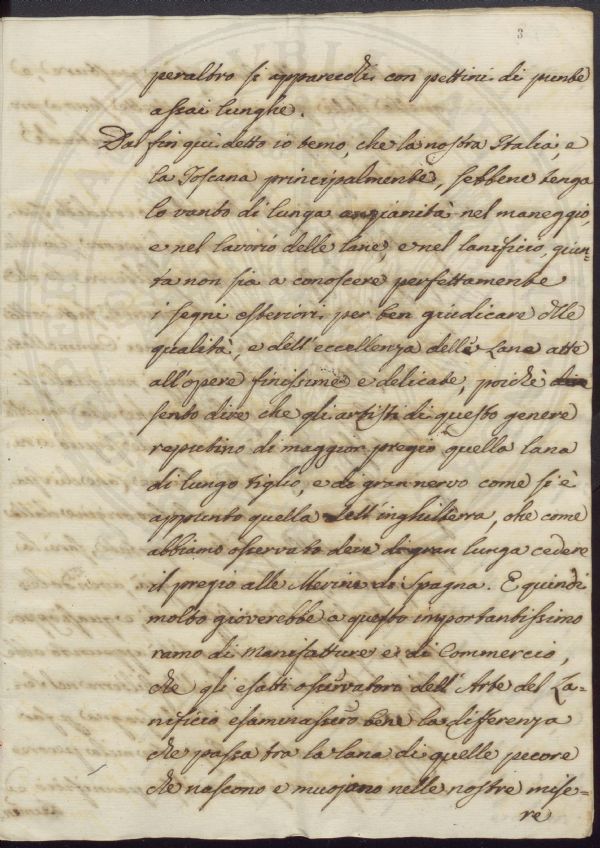 3
peraltro si apparecchi con pettini di punte
assai lunghe.
Dal fin qui detto io temo, che la nostra Italia, e
la Toscana principalmente, sebbene tenga
lo vanto di lunga anzianità nel maneggio,
e nel lavorio delle lane, e nel lanificio, giun-
ta non sia a conoscere perfettamente
i segni esteriori per ben giudicare delle
qualità, e dell'eccellenza delle Lane atte
all'opere finissime e delicate, poichè
sento dire che gli artisti di questo genere
reputino di maggior pregio quella lana
di lungo tiglio, e di gran nervo come si è
appunto quella dell'inghilterra, che come
abbiamo osservato deve di gran lunga cedere
il pregio alle Merine di Spagna. E quindi
molto gioverebbe a questo importantissimo
ramo di Manifatture e di Commercio,
che gli esatti osservatori dell'Arte del La=
nificio esaminassero bene la differenza
che passa tra la lana di quelle pecore
che nascono e muojono nelle nostre mise=
re